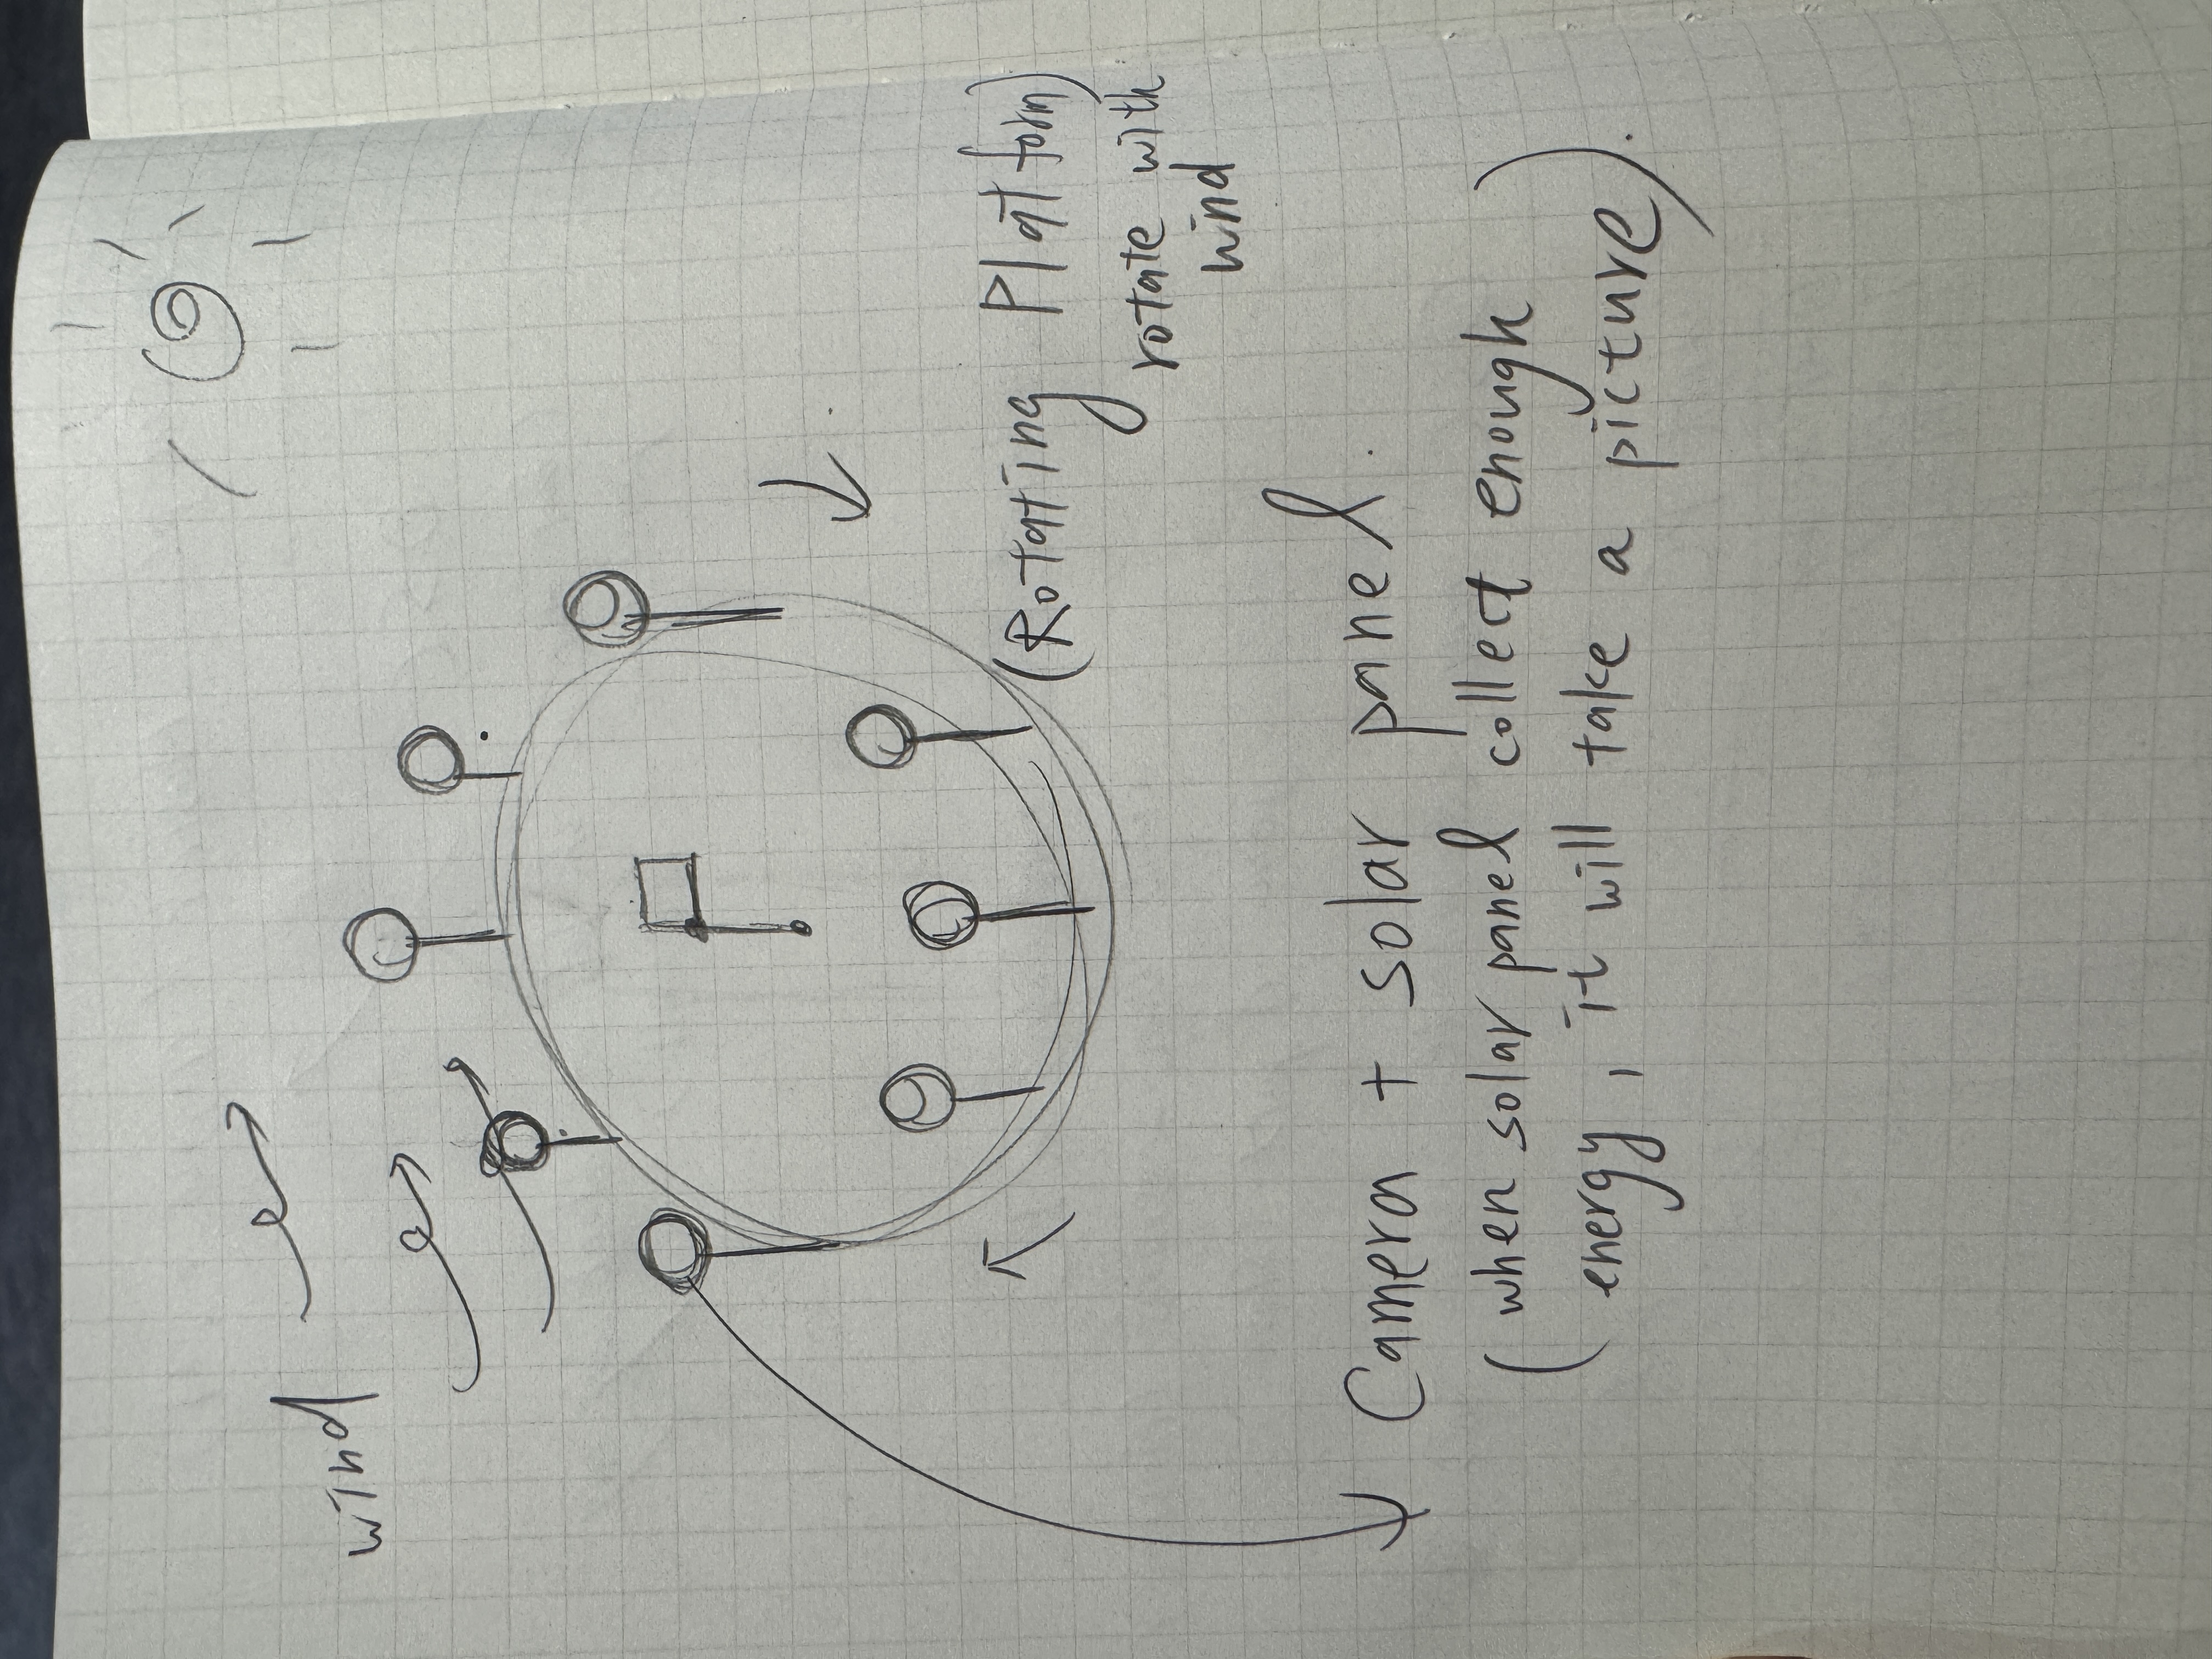 wind
(Rotating Platform)
rotate with
wind
Camera + solar panel.
(when solar panel collect enough
energy, it will take a picture).